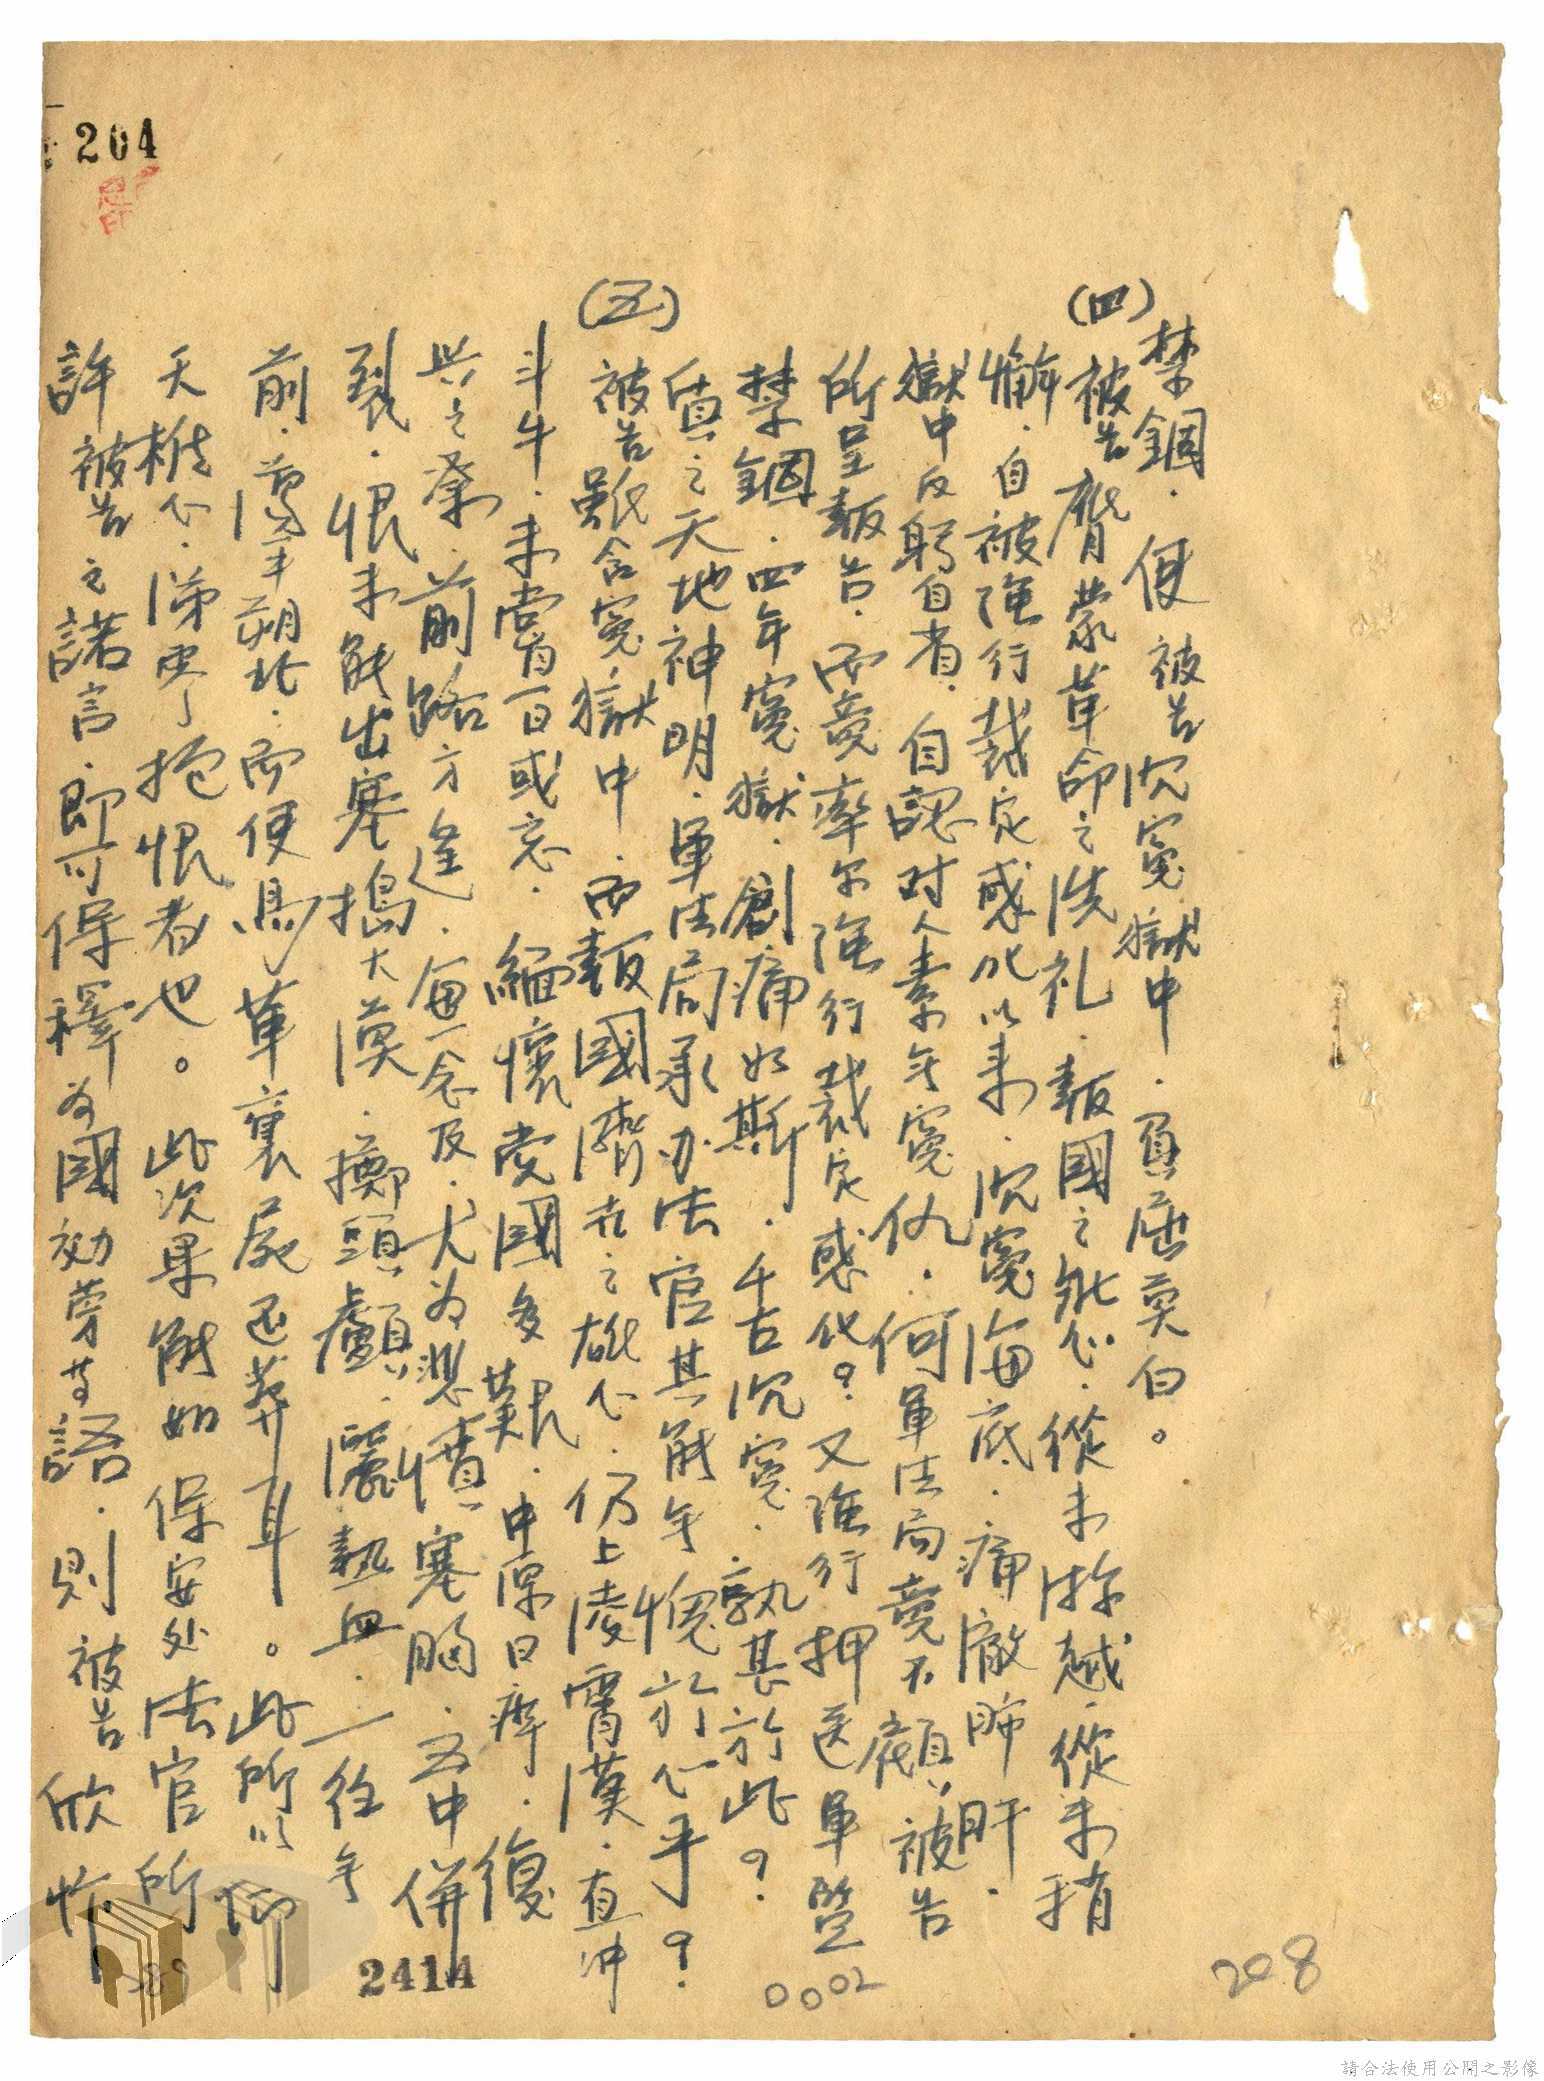 禁錮．使被告沉冤獄中．負屈莫白。
(四)
被告膺蒙革命之洗礼．報國之熱心．從未渝越．從未稍
懈．自被強行裁定感化以来．沉冤海底．痛徹肺肝．
獄中反躬自省．自認对人素无冤仇．何軍法局竟不顧被告
所呈報告．而竟率尔強行裁定感化？又強行押送軍監
禁錮．四年冤獄．創痛如斯．千古沉冤．孰甚於此？
質之天地神明．軍法局承办法官其能无愧於心乎？
(五)
被告雖含冤獄中．而報國濟世之雄心．仍上凌霄漢．直冲
斗牛．未嘗一日或忘．緬懷党國多艱．中原日瘁．復
興之業．前路方遙．每一念及．尤為悲憤塞胸．五中併
裂．恨未能出塞搗大漠．擲頭顱．灑熱血．一往无
前．蕩平朔北．而使馬革裹屍还葬耳。此所以仰
天椎心．涕零抱恨者也。此次果能如保安处法官所
許被告之諾言．即可保釋为國効劳等語．則被告欣忭
204
2414
0002
208
289
請合法使用公開之影像